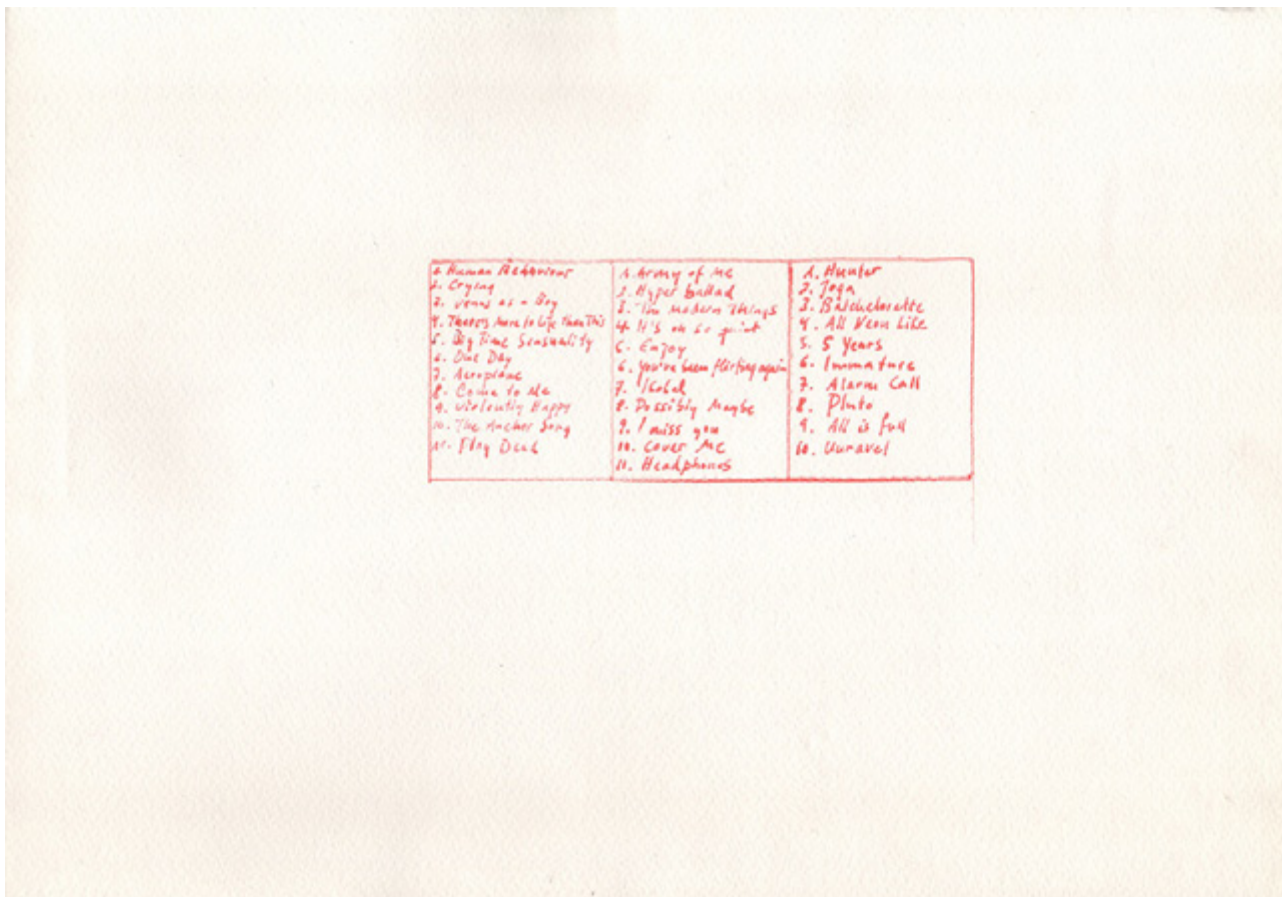 1. Human Behaviour
2. Crying
3. Venus as a Boy
4. There's More to Life Than This
5. Big Time Sensuality
6. One Day
7. Aeroplane
8. Come to Me
9. Violently Happy
10. The Anchor Song
11. Play Dead
1. Army of Me
2. Hyper ballad
3. The Modern Things
4. It's oh so quiet
5. Enjoy
6. You've been flirting again
7. Isobel
8. Possibly Maybe
9. I miss you
10. Cover Me
11. Headphones
1. Hunter
2. Joga
3. Batchelorette
4. All Neon Like
5. 5 Years
6. Immature
7. Alarm Call
8. Pluto
9. All is full
10. Unravel